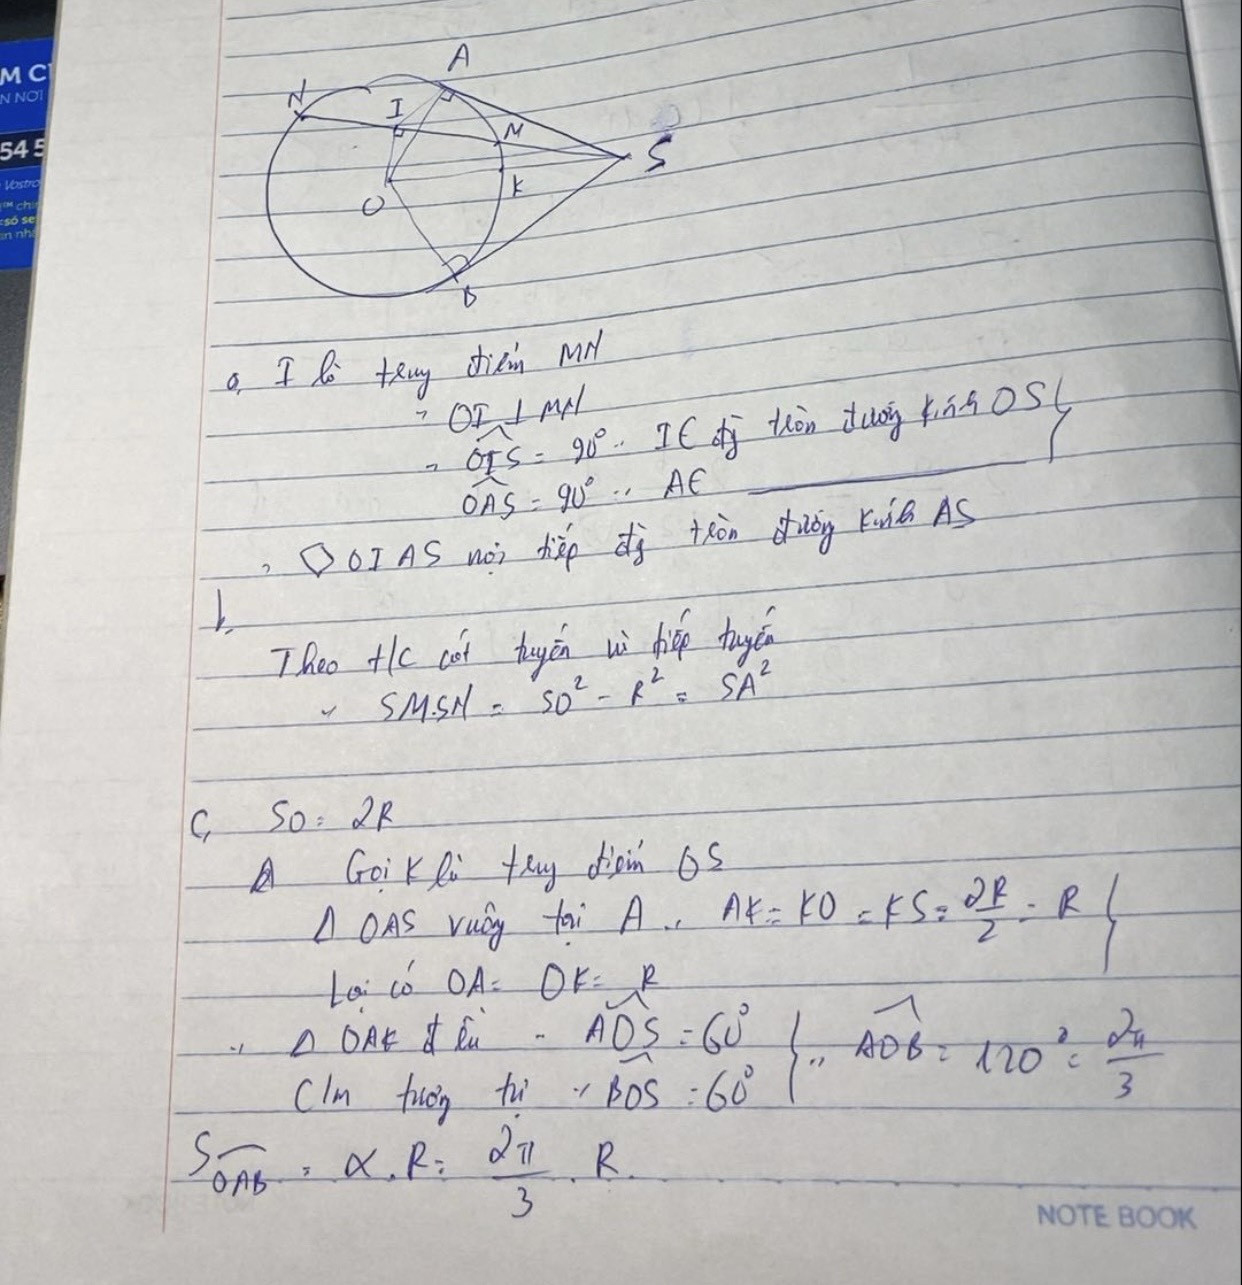 M C
N NƠI
54 5
Vostro
™ chi
số se
N
I
A
M
S
K
O
B
a, I là trung điểm MN
OI ⊥ MN
OIS = 90° ∴ I ∈ đg tròn đường kính OS }
OAS = 90° ∴ A ∈ ———
◇ OIAS nội tiếp đg tròn đường kính AS
b,
Theo t/c cát tuyến và tiếp tuyến
SM.SN = SO² - R² = SA²
c, SO = 2R
Gọi K là trung điểm OS
Δ OAS vuông tại A ∴ AK = KO = KS = 2R/2 = R }
Lại có OA = OK = R
∴ Δ OAK đều - AOS = 60° } ∴ AOB = 120° = 2π/3
C/m tương tự ∴ BOS = 60°
S OAB = α.R = 2π/3 . R.
NOTE BOOK